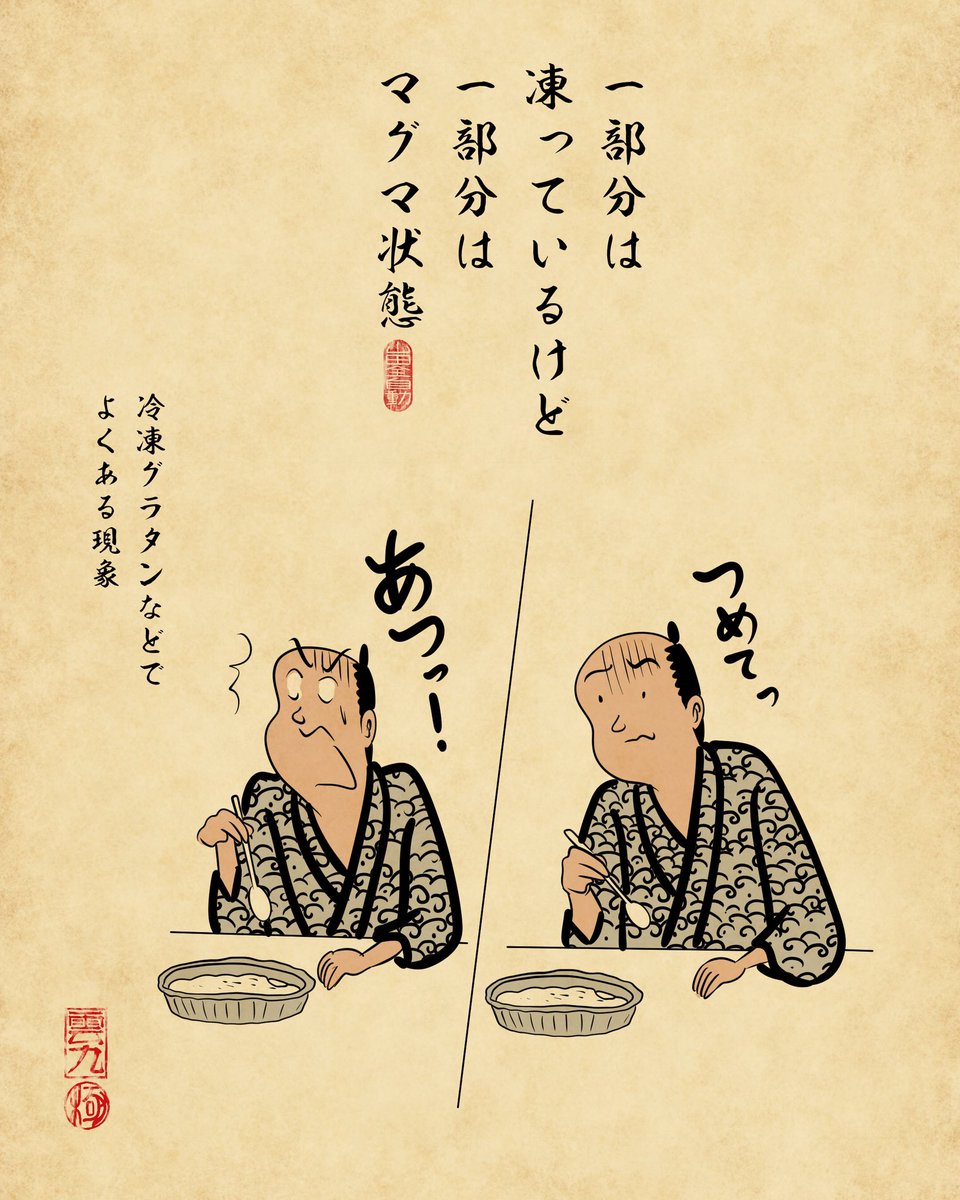 一部分は
凍っているけど
一部分は
マグマ状態
つめてっ
あつっ！
冷凍グラタンなどで
よくある現象